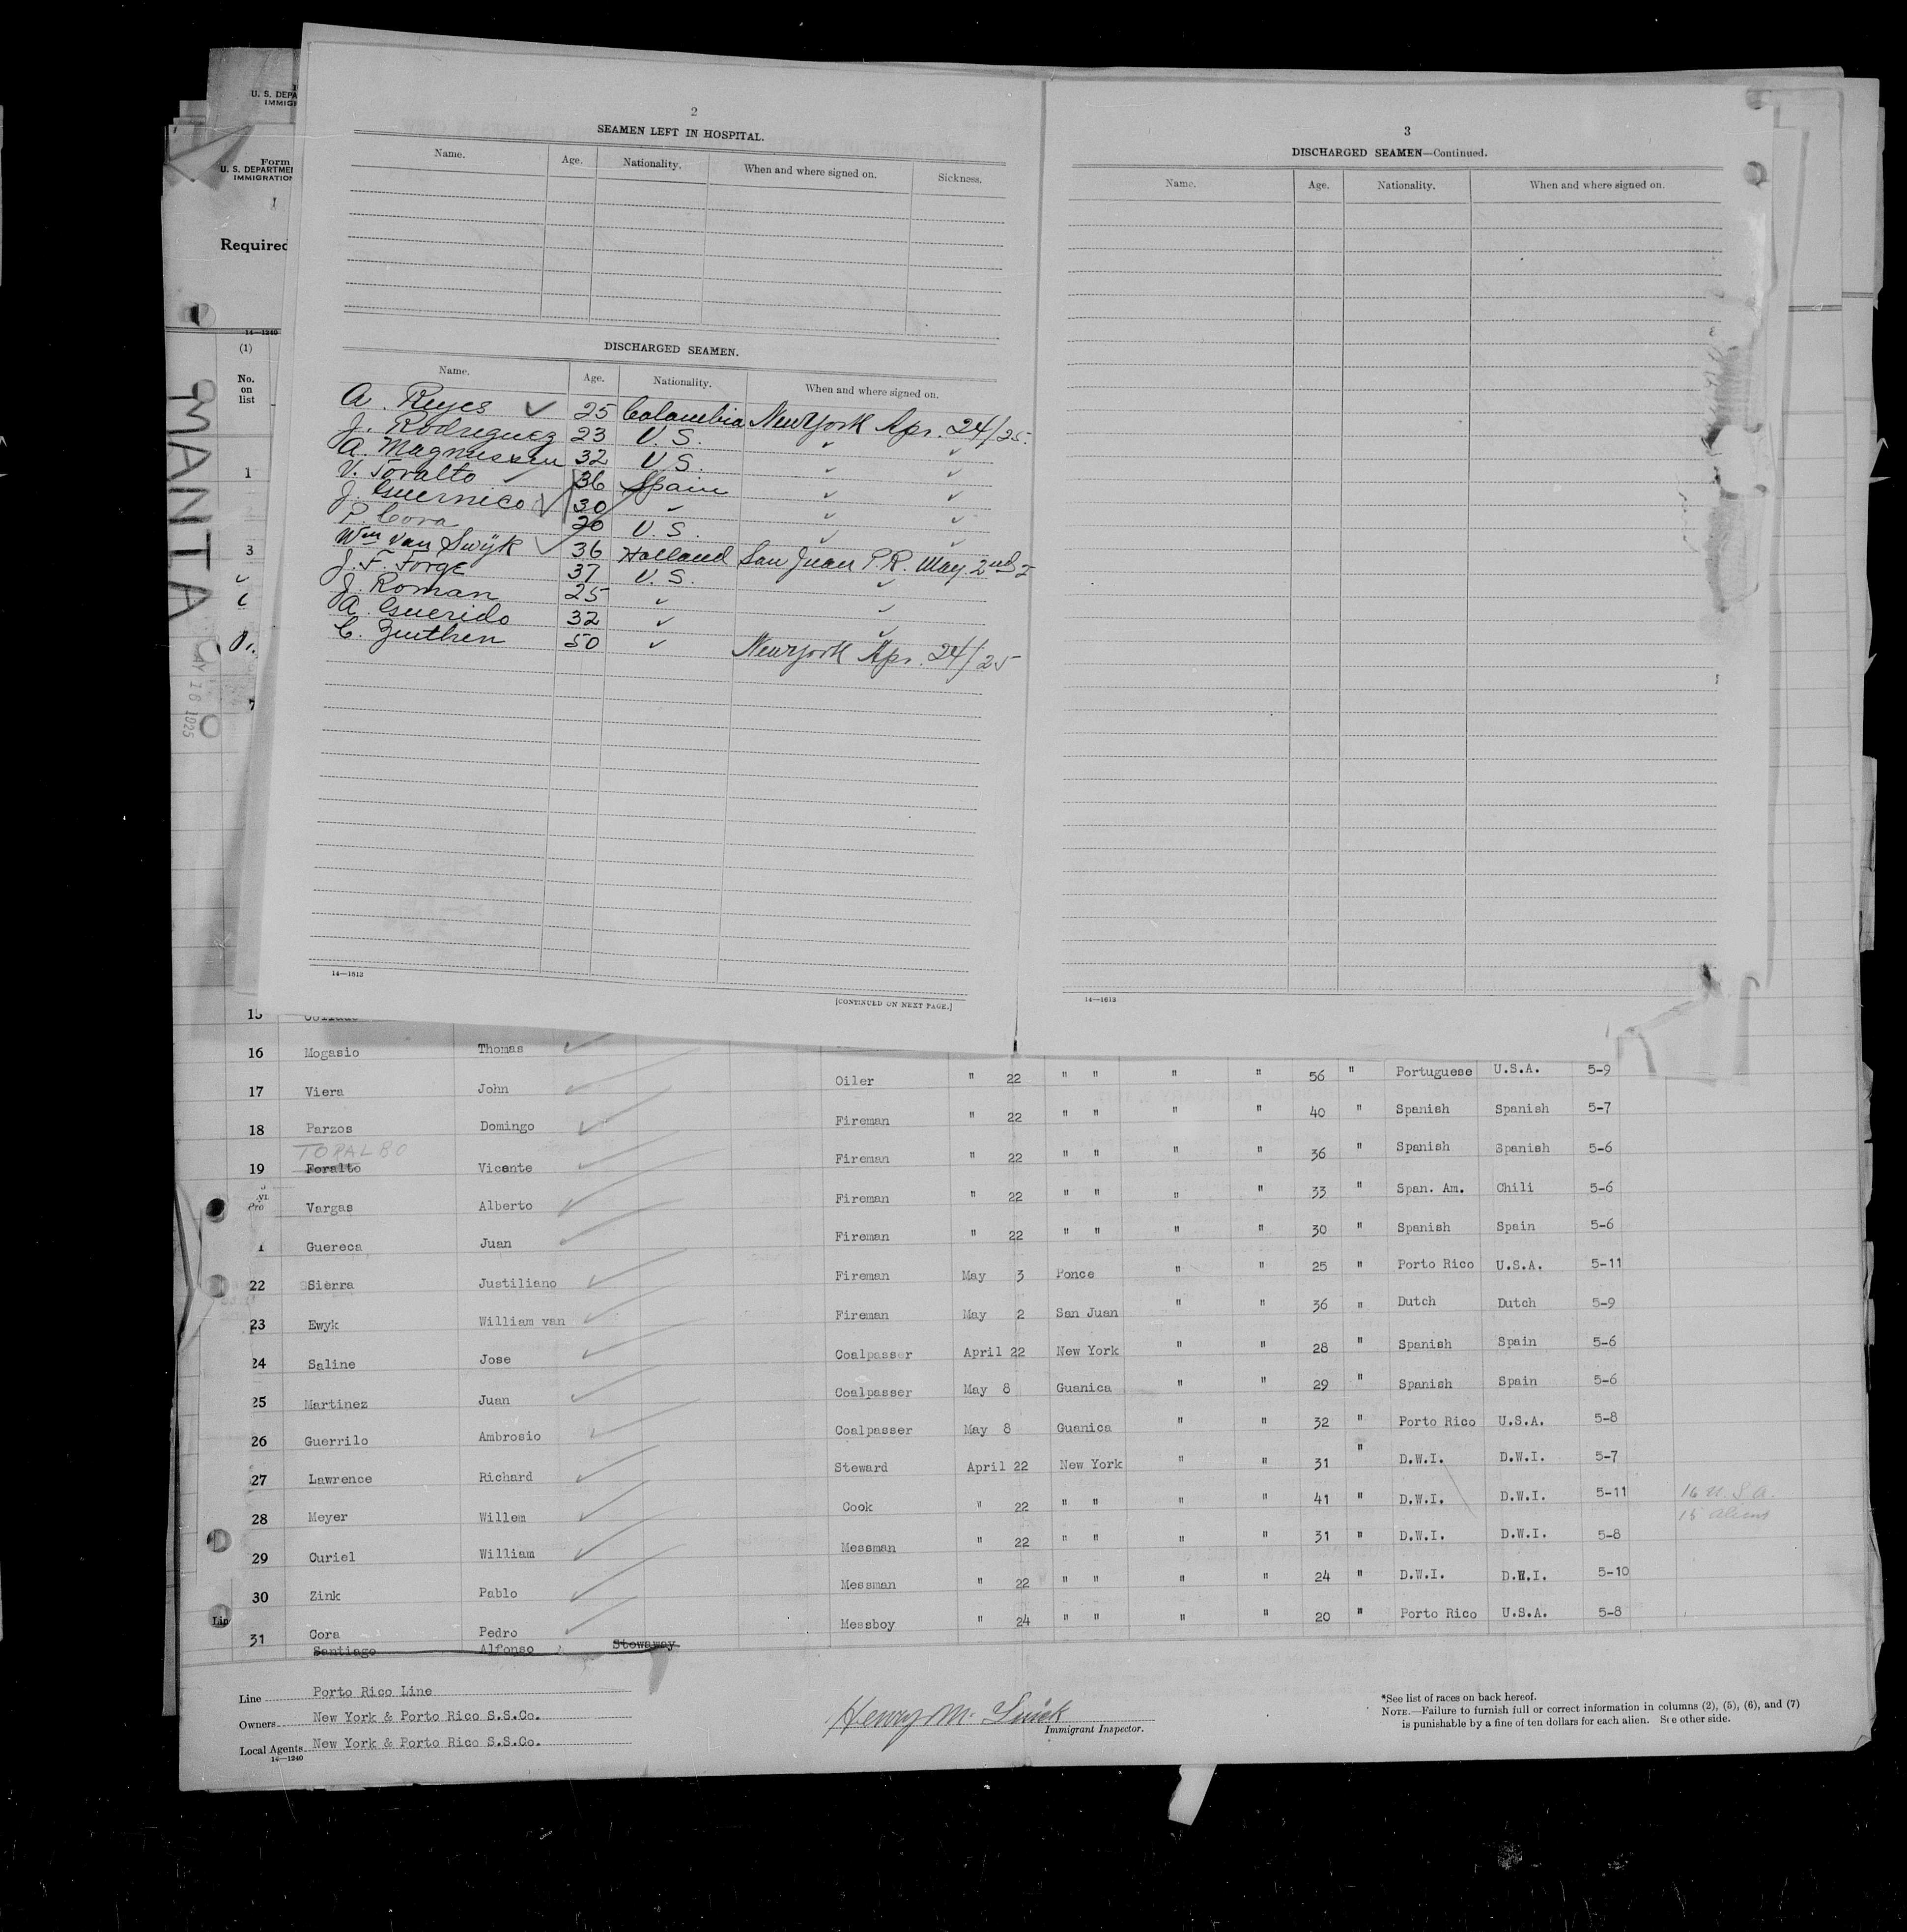 U. S. DEPA
IMMIGR
Form
U. S. DEPARTMEN
IMMIGRATION
Required
14—1240
(1)
No.
on
list
1
3
MANTA
MAY 16 1925
2
SEAMEN LEFT IN HOSPITAL.
Name. Age. Nationality. When and where signed on. Sickness.
DISCHARGED SEAMEN.
Name. Age. Nationality. When and where signed on.
A. Reyes ✓ 25 Colombia New York Apr. 24/25.
J. Rodriguez 23 U.S. ✓ ✓
A. Magnussen 32 U.S. ✓ ✓
V. Toralto 36 Spain ✓ ✓
J. Guernico 30 ✓ ✓ ✓
P. Cora 20 U.S. ✓ ✓
Wm van Swijk 36 Holland San Juan P.R. May 2nd
J. F. Forge 37 U.S. ✓
J. Roman 25 ✓ ✓
A. Guerido 32 ✓ ✓
C. Zuithen 50 ✓ New York Apr. 24/25
14—1613
[CONTINUED ON NEXT PAGE.]
3
DISCHARGED SEAMEN—Continued.
Name. Age. Nationality. When and where signed on.
14—1613
15
16 Mogasio Thomas
17 Viera John Oiler " 22 " " " " 56 " Portuguese U.S.A. 5-9
18 Parzos Domingo Fireman " 22 " " " " 40 " Spanish Spanish 5-7
TORALBO
19 Foralto Vicente Fireman " 22 " " " " 36 " Spanish Spanish 5-6
Vargas Alberto Fireman " 22 " " " " 33 " Span. Am. Chili 5-6
1 Guereca Juan Fireman " 22 " " " " 30 " Spanish Spain 5-6
22 Sierra Justiliano Fireman May 3 Ponce " " 25 " Porto Rico U.S.A. 5-11
23 Ewyk William van Fireman May 2 San Juan " " 36 " Dutch Dutch 5-9
24 Saline Jose Coalpasser April 22 New York " " 28 " Spanish Spain 5-6
25 Martinez Juan Coalpasser May 8 Guanica " " 29 " Spanish Spain 5-6
26 Guerrilo Ambrosio Coalpasser May 8 Guanica " " 32 " Porto Rico U.S.A. 5-8
27 Lawrence Richard Steward April 22 New York " " 31 " D.W.I. D.W.I. 5-7
28 Meyer Willem Cook " 22 " " " " 41 " D.W.I. D.W.I. 5-11 16 U.S.A.
15 aliens
29 Curiel William Messman " 22 " " " " 31 " D.W.I. D.W.I. 5-8
30 Zink Pablo Messman " 22 " " " " 24 " D.W.I. D.W.I. 5-10
31 Cora Pedro Messboy " 24 " " " " 20 " Porto Rico U.S.A. 5-8
Santiago Alfonso Stowaway
Line Porto Rico Line
Owners New York & Porto Rico S.S.Co.
Local Agents New York & Porto Rico S.S.Co.
14—1240
Henry M.
Immigrant Inspector.
*See list of races on back hereof.
NOTE.—Failure to furnish full or correct information in columns (2), (5), (6), and (7)
is punishable by a fine of ten dollars for each alien. See other side.